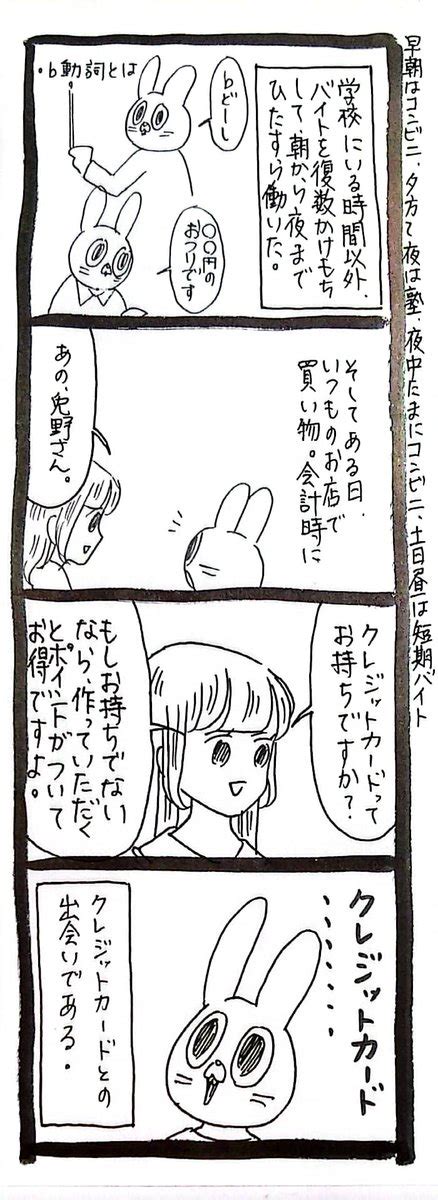 早朝はコンビニ、夕方て夜は塾、夜中たまにコンビニ、土日昼は短期バイト
学校にいる時間以外、
バイトを復数かけもち
して朝から夜まで
ひたすら働いた。
bどーし
・b動詞とは
〇〇円の
おつりです
そしてある日、
いつものお店で
買い物。会計時に
あの、兎野さん。
クレジットカードって
お持ちですか？
もしお持ちでない
なら、作っていただく
とポイントがついて
お得ですよ。
クレジットカード
・・・・・・・
クレジットカードとの
出会いである。